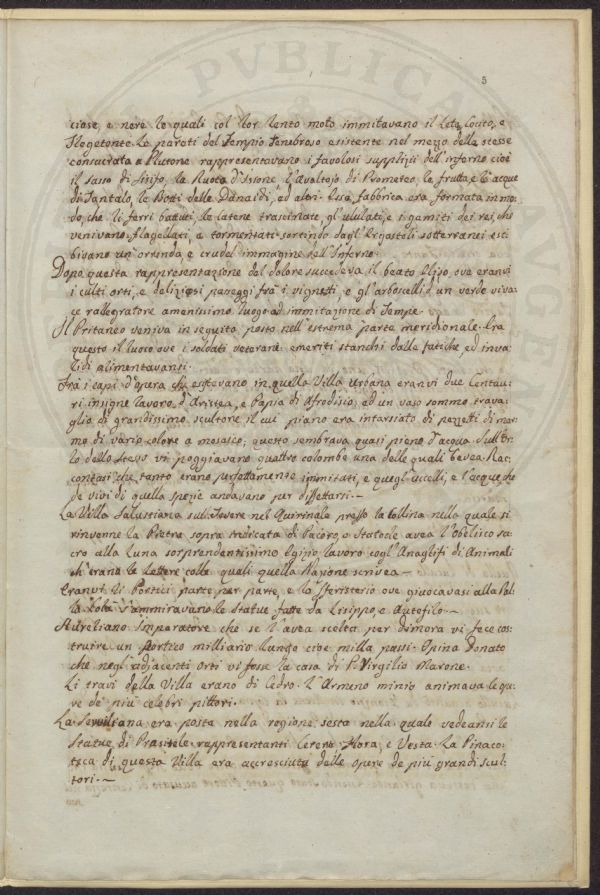 5
ciose, e nere le quali col lor lento moto immitavano il Lete, Cocito, e
Flegetonte. Le pareti del Tempio Tenebroso esistente nel mezzo delle stesse
consacrata a Plutone rappresentavano i favolosi supplizii dell'inferno cioè
il sasso di Sisifo, la Ruota d'Issione l'Avoltojo di Prometeo, le frutta, e l'acque
di Tantalo, le Botti delle Danaidi, ed altri. Essa fabbrica era formata in mo-
do, che li ferri battuti, le catene trascinate, gl'ululati, e i gemiti dei rei, che
venivano flagellati, e tormentati sortendo dagl'Ergastoli sotterranei esi-
bivano un'orrenda e crudel immagine dell'Inferno.
Dopo questa rappresentazione del dolore succedeva il beato Eliso, ove eranvi
i culti orti, e deliziosi passeggi frà i vigneti, e gl'arboscelli d'un verde viva-
ce rallegratore amenissimo luogo ad immitazione di Tempe.
Il Pritaneo veniva in seguito posto nell'estrema parte meridionale. Era
questo il luoco ove i soldati veterani emeriti stanchi dalle fatiche ed inva-
lidi alimentavansi.
Frà i capi d'opera che esistevano in quella Villa Urbana eranvi due Centau-
ri insigne lavoro d'Aristea, e Papia di Afrodisio; ed un vaso sommo trava-
glio di grandissimo scultore il cui piano era intarsiato di pezzetti di mar-
mo di vario colore a mosaico; questo sembrava quasi pieno d'acqua. Sull'Or-
lo dello stesso vi poggiavano quattro colombe una delle quali bevea. Rac-
contasi che tanto erano perfettamente immitati, e quegl'uccelli, e l'acque che
de vivi di quella spezie andavano per dissettarsi.
La Villa Salustiana sul Tevere nel Quirinale presso la Collina nella quale si
rinvenne la Pietra sopra indicata di Pacoro e Statocle avea l'obelisco sa-
cro alla Luna sorprendentissimo Egizio lavoro cogl'Anaglifi di Animali
ch'erano le Lettere colle quali quella Nazione scrivea
Eranvi li Portici parte per parte, e lo Sferisterio ove giuocavasi alla Pal-
la. Colà s'ammiravano le Statue fatte da Lisippo, e Autofilo
Aureliano Imperatore che se l'avea scelta per dimora vi fece cos-
truire un portico milliario lungo cioè mille passi. Opina Donato
che negl'adjacenti orti vi fosse la casa di P. Virgilio Marone.
Li travi della Villa erano di Cedro. L'Armeno minio animava le ope-
re de' più celebri pittori.
La Serviliana era posta nella regione sesta nella quale vedeansi le
Statue di Prasitele rappresentanti Cerere, Flora, e Vesta. La Pinaco-
teca di questa Villa era accresciuta delle opere de più grandi scul-
tori.
PVBLICA